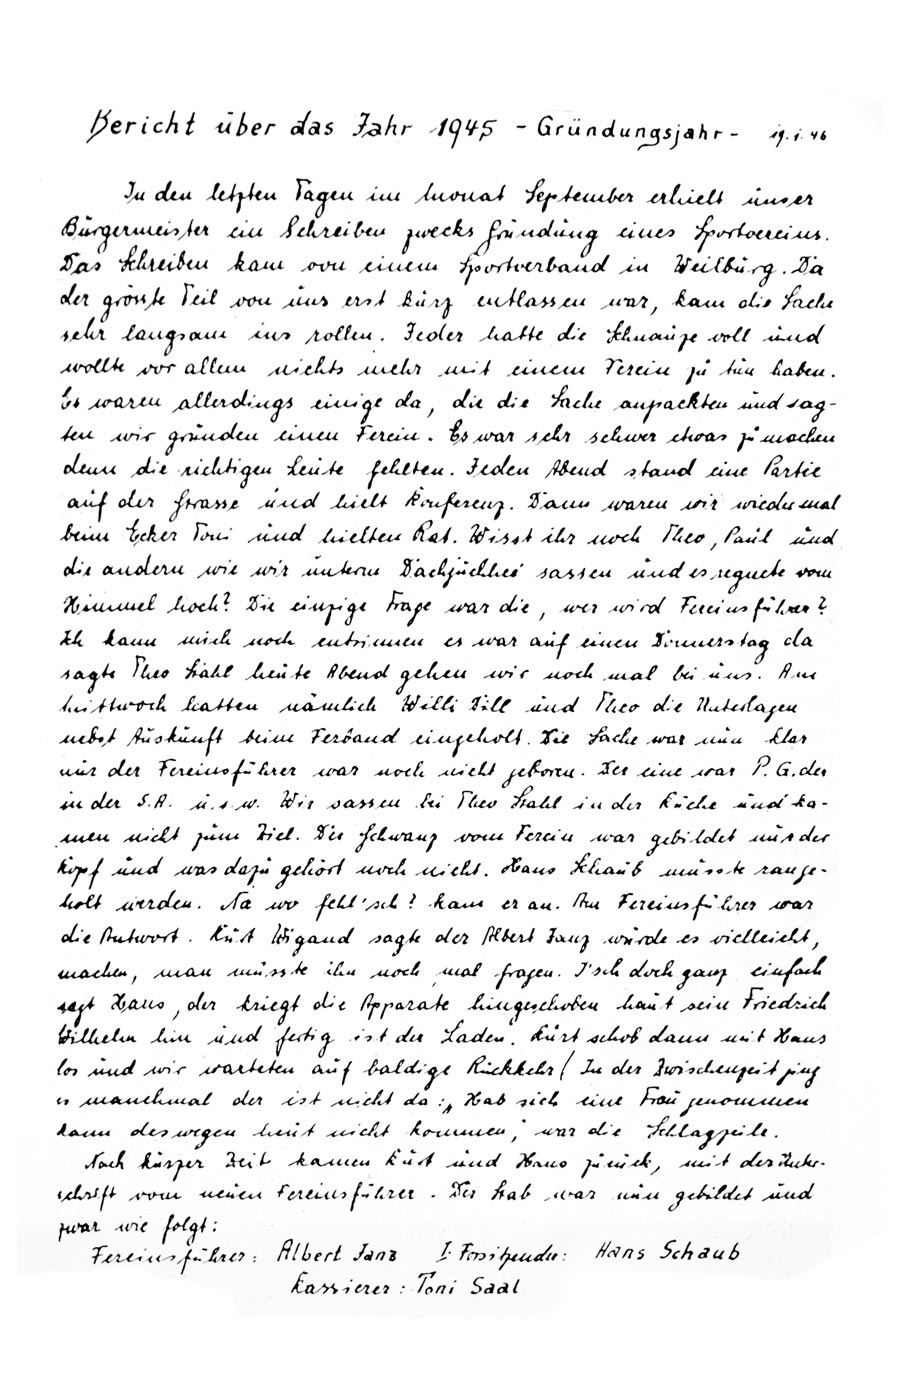 Bericht über das Jahr 1945 - Gründungsjahr - 19.1.46
In den letzten Tagen im Monat September erhielt unser
Bürgermeister ein Schreiben zwecks Gründung eines Sportvereins.
Das Schreiben kam von einem Sportverband in Weilburg. Da
der grösste Teil von uns erst kurz entlassen war, kam die Sache
sehr langsam ins rollen. Jeder hatte die Schnauze voll und
wollte vor allem nichts mehr mit einem Verein zu tun haben.
Es waren allerdings einige da, die die Sache anpackten und sag-
ten wir gründen einen Verein. Es war sehr schwer etwas zu machen
denn die richtigen Leute fehlten. Jeden Abend stand eine Partie
auf der Strasse und hielt Konferenz. Dann waren wir wieder mal
beim Ecker Toni und hielten Rat. Wisst ihr noch Theo, Paul und
die andern wie wir unterm Dachjuchhei sassen und es regnete vom
Himmel hoch? Die einzige Frage war die, wer wird Vereinsführer?
Ich kann mich noch entsinnen es war auf einen Donnerstag da
sagte Theo Stahl heute Abend gehen wir noch mal bei uns. Am
Mittwoch hatten nämlich Willi Dill und Theo die Unterlagen
nebst Auskunft beim Verband eingeholt. Die Sache war nun klar
nur der Vereinsführer war noch nicht geboren. Der eine war P.G. der
in der S.A. u.s.w. Wir sassen bei Theo Stahl in der Küche und ka-
men nicht zum Ziel. Der Schwanz vom Verein war gebildet nur der
Kopf und was dazu gehört noch nicht. Hans Schaub musste range-
holt werden. Na wo fehl'sch? kam er an. Am Vereinsführer war
die Antwort. Kurt Wigand sagte der Albert Janz würde es vielleicht,
machen, man müsste ihn noch mal fragen. I'sch doch ganz einfach
sagt Hans, der kriegt die Apparate hingeschoben haut sein Friedrich
Wilhelm hin und fertig ist der Laden. Kurt schob dann mit Hans
los und wir warteten auf baldige Rückkehr! In der Zwischenzeit ging
es manchmal der ist nicht da: „Hab sich eine Frau genommen
kann deswegen heut nicht kommen," war die Schlagzeile.
Nach kurzer Zeit kamen Kurt und Hans zurück, mit der Unter-
schrift vom neuen Vereinsführer. Der Stab war nun gebildet und
zwar wie folgt:
Vereinsführer: Albert Janz I. Vorsitzender: Hans Schaub
Kassierer: Toni Saal